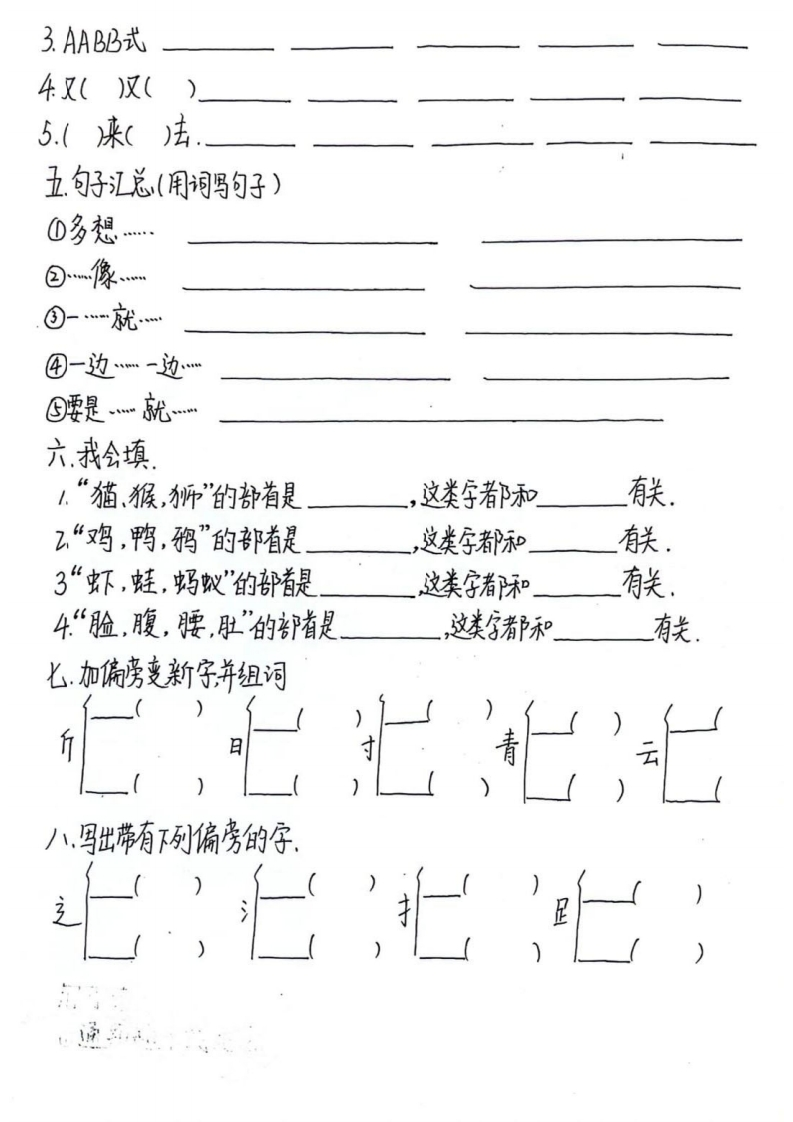 3.AABB式
4.又(  )又(  )
5.(  )来(  )去.
五.句子汇总(用词写句子)
①多想……
②……像……
③一……就……
④一边……一边……
⑤要是……就……
六.我会填.
1."猫、猴,狮"的部首是________,这类字都和________有关.
2."鸡,鸭,鸦"的部首是________,这类字都和________有关.
3"虾,蛙,蚂蚁"的部首是________,这类字都和________有关.
4."脸,腹,腰,肚"的部首是________,这类字都和________有关.
七.加偏旁变新字,并组词
斤 日 寸 青 云
八.写出带有下列偏旁的字.
辶 氵 扌 足